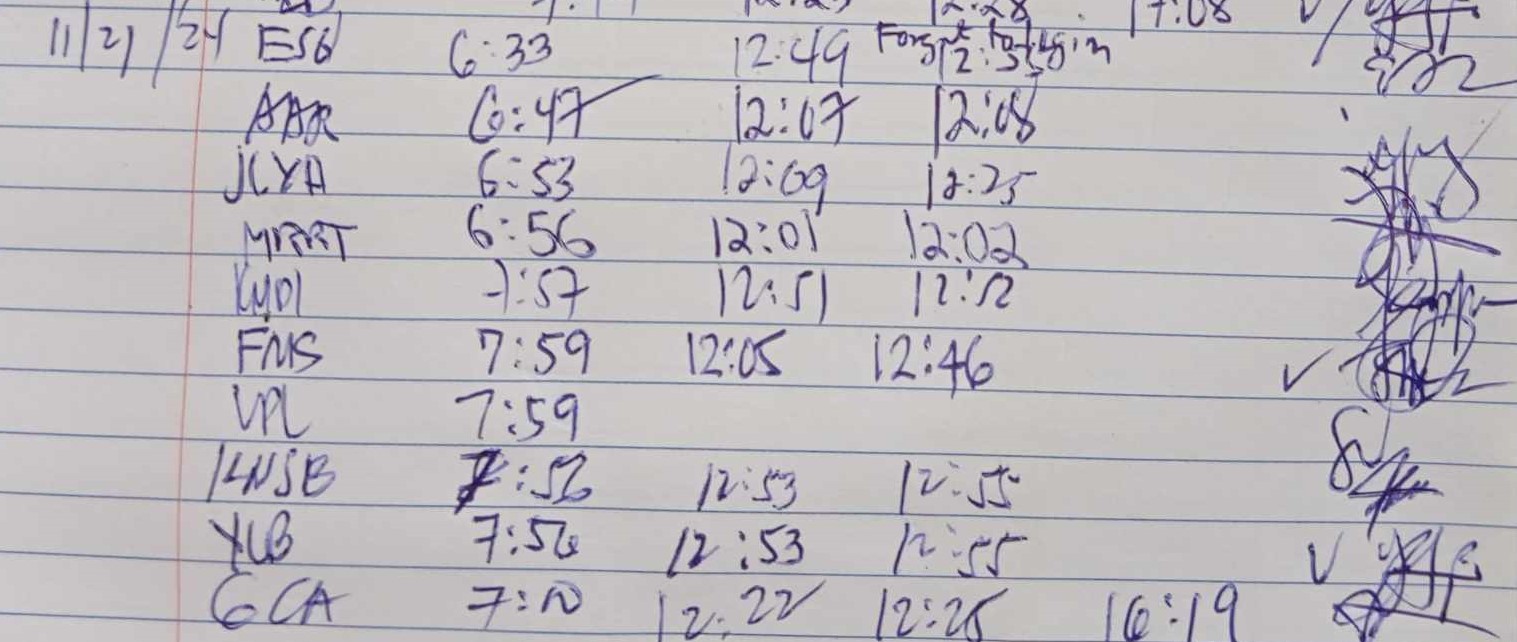 12:28 17:08
11/21/24 ESG 6:33 12:49 Forgot to login
AAR 6:47 12:07 12:08
JCYA 6:53 12:09 12:25
MRRT 6:56 12:01 12:02
7:57 12:51 12:52
FMS 7:59 12:05 12:46
VPL 7:59
KNSB 7:56 12:53 12:55
YLB 7:56 12:53 12:55
GCA 7:10 12:22 12:25 16:19